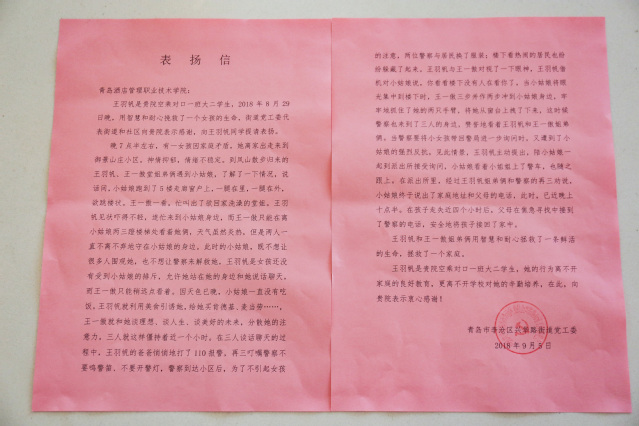 表扬信
青岛酒店管理职业技术学院：
王羽帆是贵院空乘对口一班大二学生，2018年8月29
日晚，用智慧和耐心挽救了一个女孩的生命，街道党工委代
表街道和社区向贵院表示感谢，向王羽帆同学提请表扬。
晚7点半左右，有一女孩因家庭矛盾，她离家出走来到
御景山庄小区，神情抑郁，情绪不稳定。到凤山散步归来的
王羽帆、王一傲堂姐弟俩遇到小姑娘，了解了一下情况，说
话间，小姑娘跑到了5楼走廊窗户上，一腿在里，一腿在外，
欲跳楼状。王一傲一看，忙叫出了欲回家洗澡的堂姐，王羽
帆见状吓得不轻，连忙来到小姑娘身边，而王一傲只能在离
小姑娘两三蹬楼梯处看着他俩，天气虽然炎热，但是两人一
直不离不弃地守在小姑娘的身边。此时的小姑娘，既不想让
很多人围观她，也不想让警察来解救她。王羽帆是女孩还没
有受到小姑娘的排斥，允许她站在她的身边和她说话聊天，
而王一傲只能稍远点看着。因天色已晚，小姑娘一直没有吃
饭，王羽帆就利用美食引诱她，给她买肯德基、麦当劳……，
王一傲就和她谈理想、谈人生、谈美好的未来，分散她的注
意力，三人就这样僵持着近一个小时。在三人谈话聊天的过
程中，王羽帆的爸爸悄悄地打了110报警，再三叮嘱警察不
要鸣警笛、不要开警灯，警察到达小区后，为了不引起女孩
的注意，两位警察与居民换了服装；楼下看热闹的居民也纷
纷躲藏了起来。王羽帆与王一傲对视了一下眼神，王羽帆借
机对小姑娘说，你看看楼下没有人在看你了，当小姑娘将眼
光集中到楼下时，王一傲三步并作两步冲到小姑娘身边，牢
牢地抓住了她的两只手臂，将她从窗台上拽了下来，这时候
警察也来到了三人的身边，赞誉地看着王羽帆和王一傲姐弟
俩。当警察要将小女孩带回警局进一步询问时，又遭到了小
姑娘的强烈反抗。见此情景，王羽帆主动提出，陪小姑娘一
起到派出所接受询问，小姑娘看着小姐姐上了警车，也随之
跟上。在派出所里，经过王羽帆姐弟俩和警察的再三劝说，
小姑娘终于说出了家庭地址和父母的电话，此时，已近晚上
十点半。在孩子走失近四个小时后，父母在焦急寻找中接到
了警察的电话，安全地将孩子接回了家中。
王羽帆和王一傲姐弟俩用智慧和耐心拯救了一条鲜活
的生命，拯救了一个家庭。
王羽帆是贵院空乘对口一班大二学生，她的行为离不开
家庭的良好教育，更离不开学校对她的辛勤培养，在此，向
贵院表示衷心感谢！
青岛市李沧区 路街道党工委
2018年9月5日